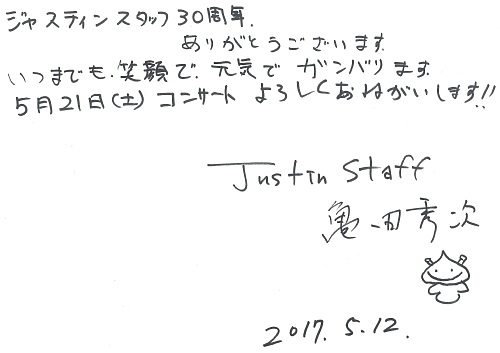 ジャスティンスタッフ30周年.
ありがとうございます.
いつまでも.笑顔で.元気でガンバります.
5月21日(土)コンサートよろしくおねがいします!!
Justin Staff
亀田秀次
2017.5.12.